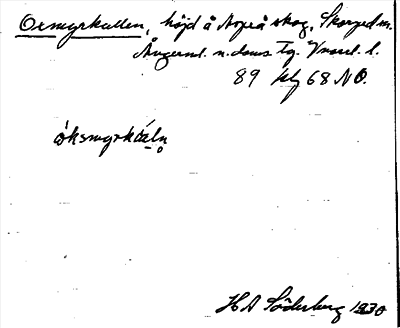 Oxmyrkullen, höjd å Noprå skog, Skorped sn.
Ångerml. n. doms tg. Vnorrl. l.
89 68 NO.
ò̀ksmyrkál̥n
H A Söderberg 1930